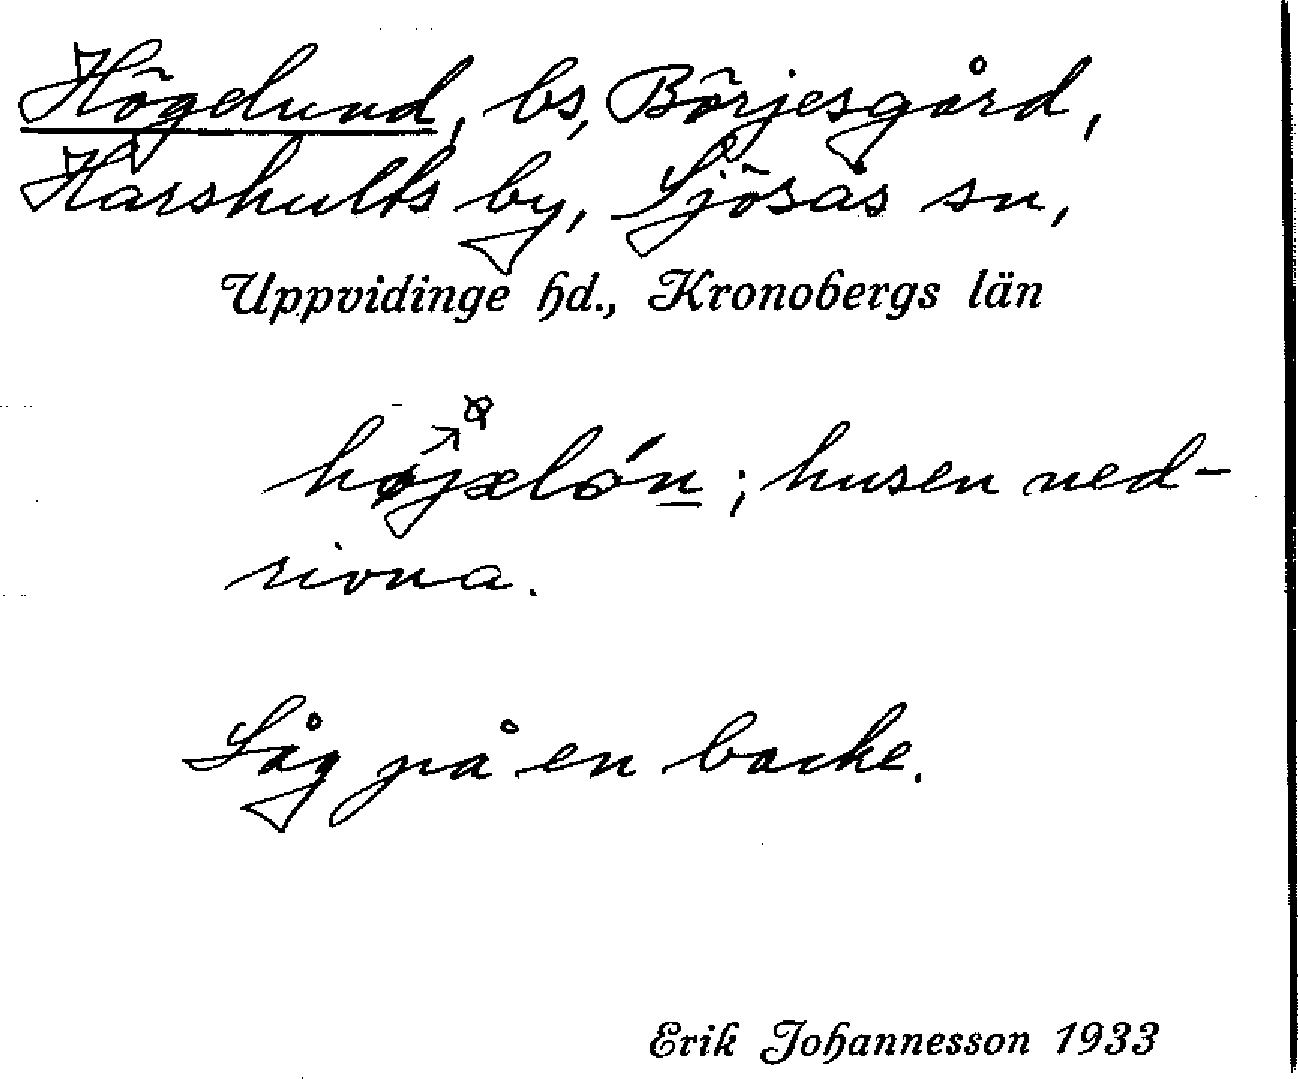 Högelund, bs, Börjesgård,
Härshults by, Sjösås sn,
Uppvidinge hd., Kronobergs län
; husen ned-
rivna.
Låg på en backe.
Erik Johannesson 1933